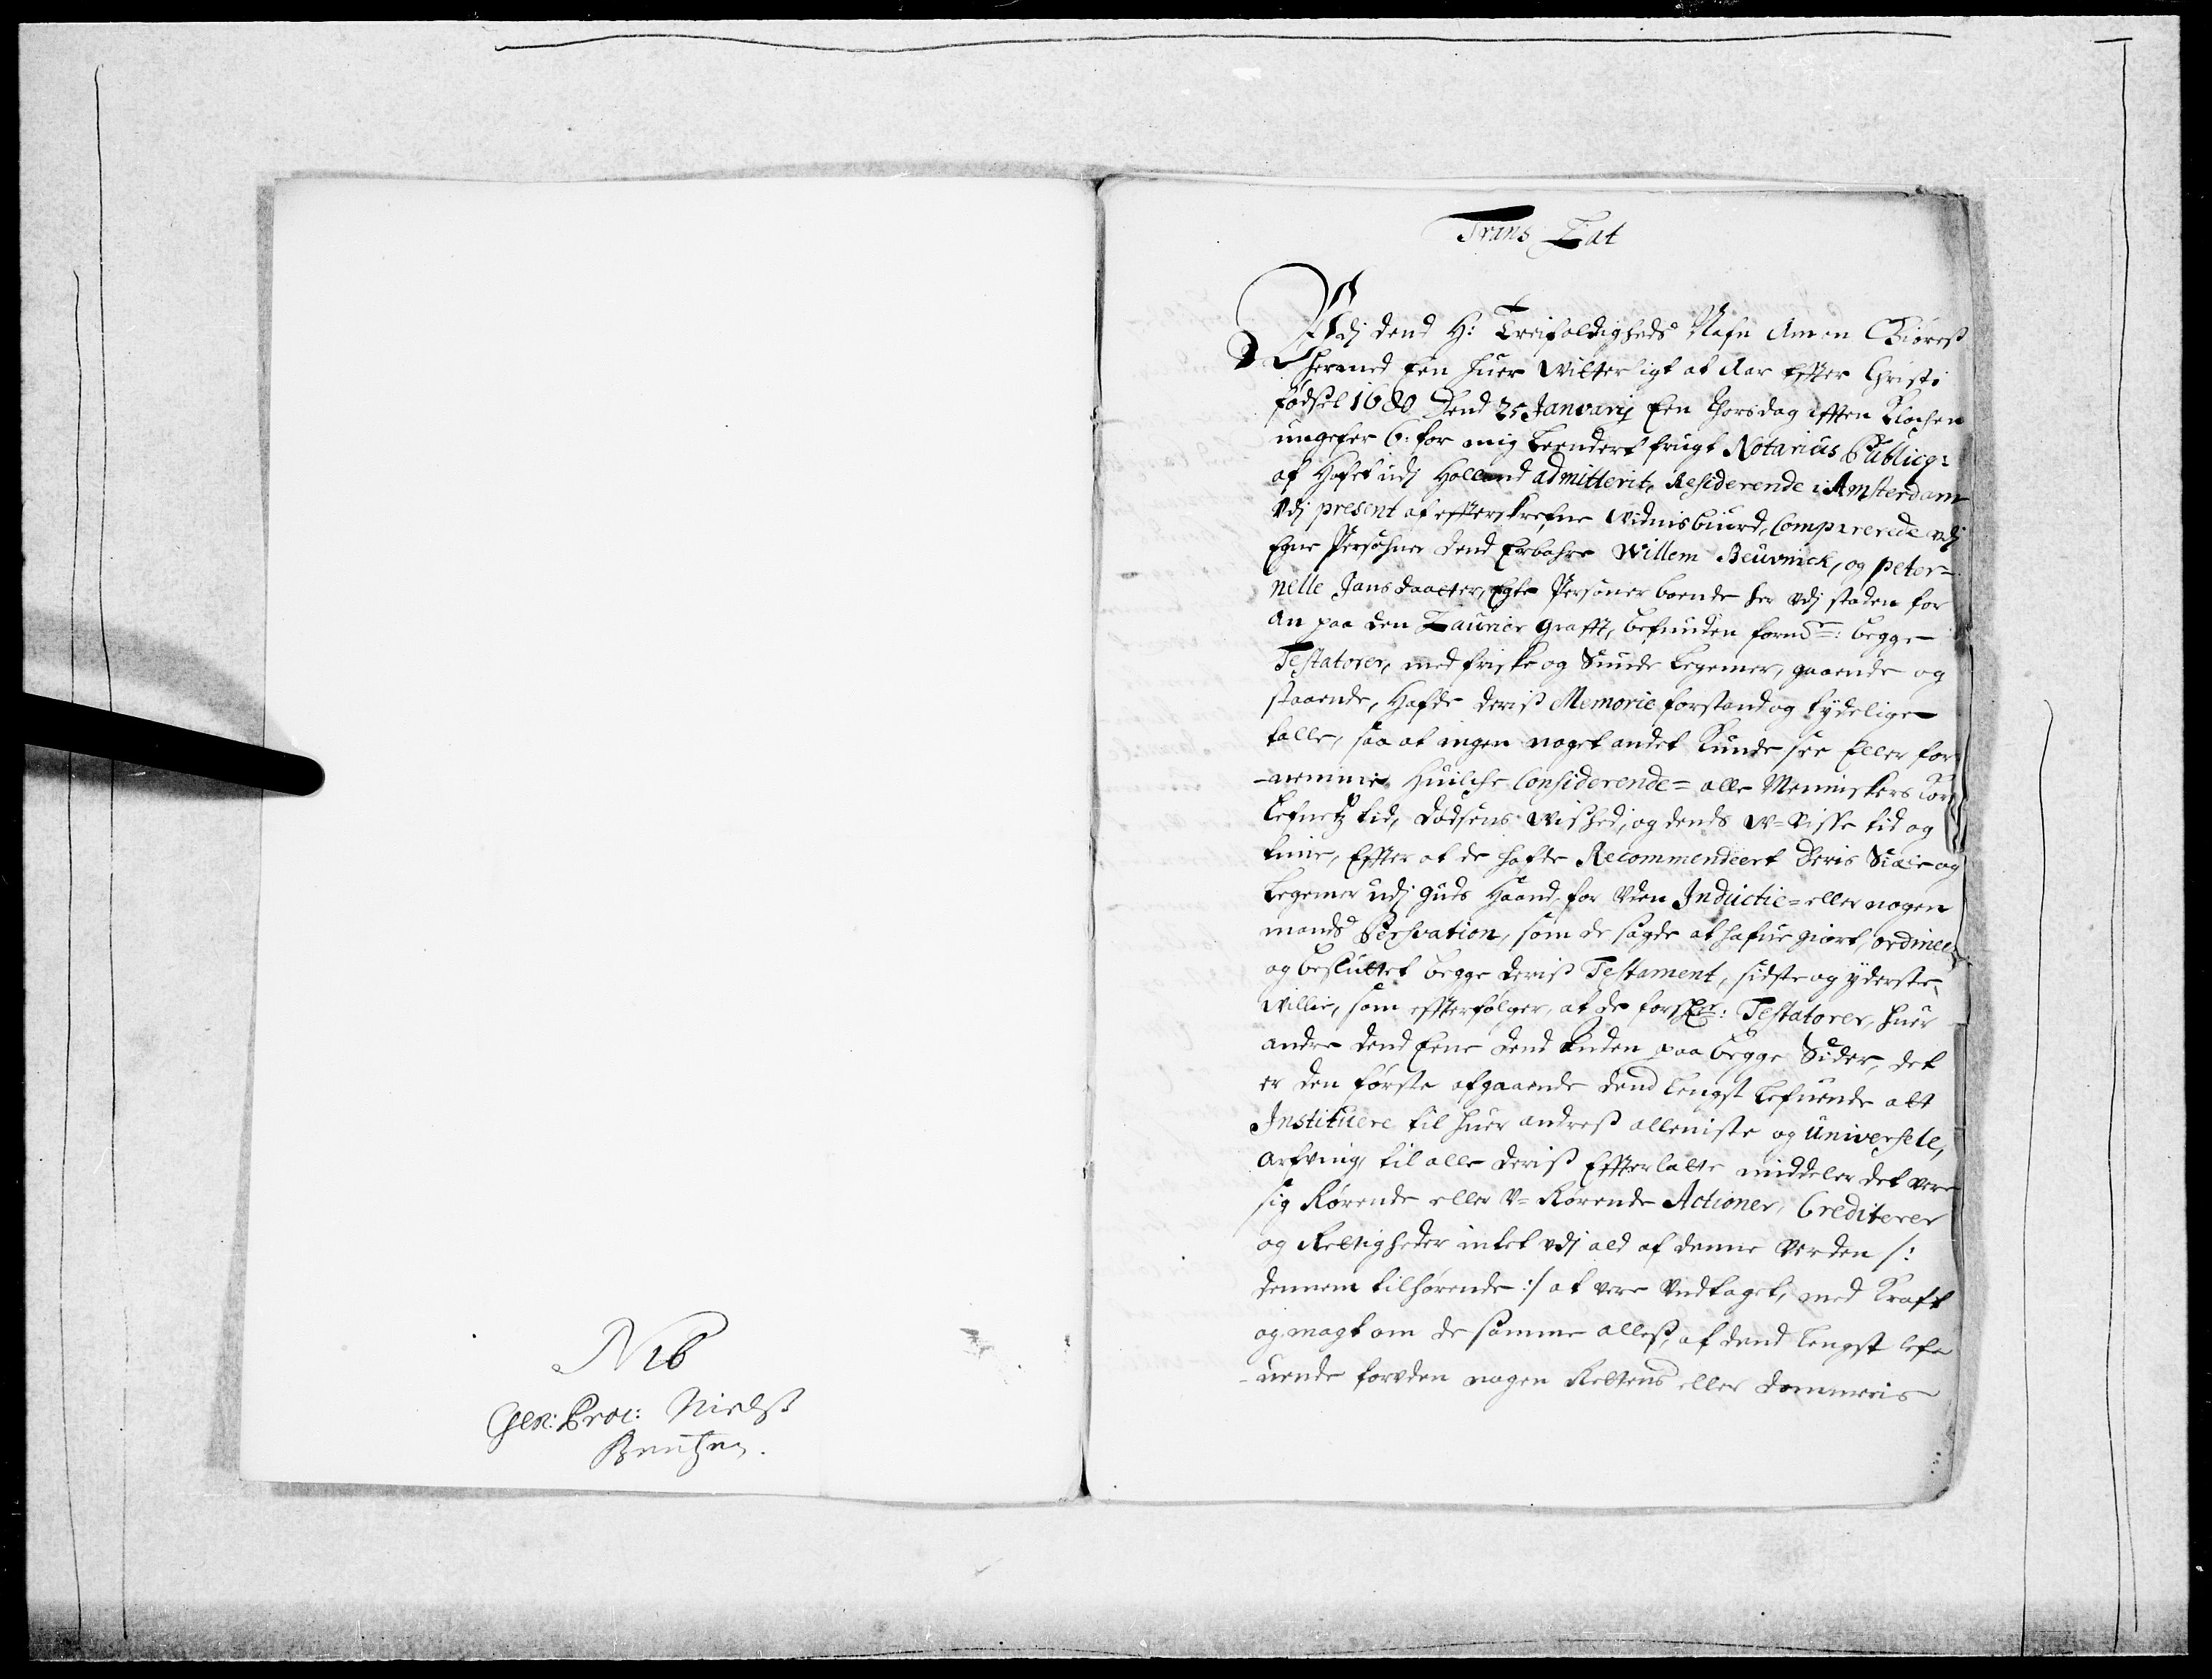 N 16
Gen: Proc: Nielss
Bentzen.
Trans Lat
Udj dend H: Treifoldigheds Nafn Amen Giøres
hermed Een huer witterligt at Aar Effter Christi
fødsel 1680 Dend 25 Januarij Een Thorsdag afften Klochen
ungefer 6: for mig Leendert frugt Notarius Publicq:
af Hofet udj Holland admitterit, Residerende i Amsterdam
Udj present af effterskrefne Widnisbuurd, Comparerede udj
Egne Persohner dend Erbahre Willem Beuvinck, og peter=
nelle Jans daatter, Egte Personer boende her udj staden for
An paa den Laurier grafft, befunden fornd: begge
Testatorer, med friske og Sunde Legemer, gaaende og
staaende, Hafde deriss Memorie forstand og tydelige
talle, saa at ingen noget andet Kunde see Eller for
-nemme. Huilche Considerende= alle Menniskers kort
Lefnetz tid, dødsens wished, og dends w=visse tid og
time, Effter at de hafde Recommendeert deris Siæle og
Legemer udj guds Haand, for Uden Inductie= eller nogen
mands Persvation, som de sagde at hafue giort, ordineert
og besluttet begge deriss Testament, sidste og yderste
willie, som effterfølger, at de forskr: Testatorer, huer
andre dend Eene dend Anden paa begge Sider, det
er den første afgaaende dend Lengst Lefuende alt
Instituere til huer andress alleniste og Universele,
Arfving, til alle deriss Effterlatte middeler det vere
sig Rørende eller U=Rørende Actioner, Crediterer
og Rettigheder intet udj ald af denne Verden /:
dennem tilhørende :/ at vere Undtaget, med Kraft
og magt om de samme alless, af dend Lengst lefu
-uende foruden nogen Rettens eller dommeris